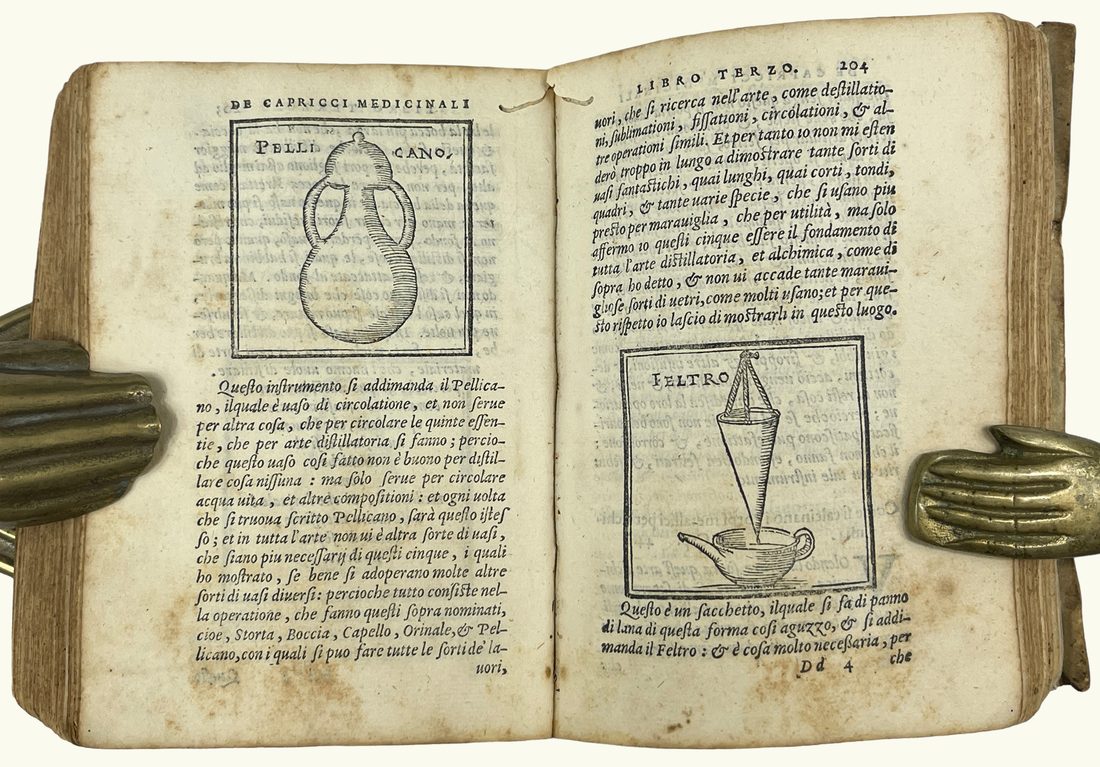 DE CAPRICCI MEDICINALI
PELLI CANO,
Questo instrumento si addimanda il Pellica-
no, ilquale è uaso di circolatione, et non serue
per altra cosa, che per circolare le quinte essen-
tie, che per arte distillatoria si fanno; percio-
che questo uaso cosi fatto non è buono per distil-
lare cosa nissuna : ma solo serue per circolare
acqua uita, et altre compositioni : et ogni uolta
che si truoua scritto Pellicano, sarà questo istes
so; et in tutta l'arte non ui è altra sorte di uasi,
che siano piu necessarij di questi cinque, i quali
ho mostrato, se bene si adoperano molte altre
sorti di uasi diuersi: percioche tutto consiste nel-
la operatione, che fanno questi sopra nominati,
cioe, Storta, Boccia, Capello, Orinale, & Pel-
licano, con i quali si puo fare tutte le sorti de' la-
uori,
LIBRO TERZO. 204
uori, che si ricerca nell'arte, come destillatio-
ni, sublimationi, fissationi, circolationi, & al-
tre operationi simili. Et per tanto io non mi esten
derò troppo in lungo a dimostrare tante sorti di
uasi fantastichi, quai lunghi, quai corti, tondi,
quadri, & tante uarie specie, che si usano piu
presto per marauiglia, che per utilità, ma solo
affermo io questi cinque essere il fondamento di
tutta l'arte distillatoria, et alchimica, come di
sopra ho detto, & non ui accade tante maraui-
gliose sorti di uetri, come molti usano; et per que-
sto rispetto io lascio di mostrarli in questo luogo.
FELTRO
Questo è un sacchetto, ilquale si fa di panno
di lana di questa forma cosi aguzzo, & si addi-
manda il Feltro : & è cosa molto necessaria, per
Dd 4 che